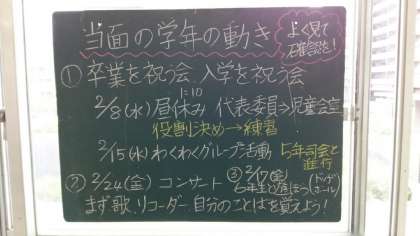 当面の学年の動き
よく見て
確認を!
① 卒業を祝う会 入学を祝う会
1:10
2/8(水)昼休み 代表委員→児童会室
役割決め→練習
2/15(水)わくわくグループ活動
5年司会と
進行
② 2/24(金) コンサート
③ 2/17(金)
6年生と (ドッヂ
ボール)
まず歌、リコーダー、自分のことばを覚えよう!